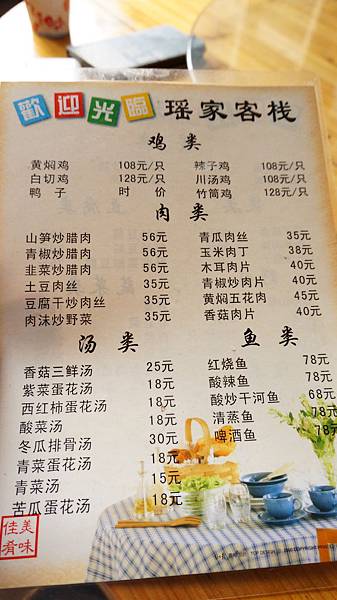 歡迎光臨 瑶家客栈
鸡类
黄焖鸡 108元/只 辣子鸡 108元/只
白切鸡 128元/只 川汤鸡 108元/只
鸭子 时价 竹筒鸡 128元/只
肉类
山笋炒腊肉 56元 青瓜肉丝 35元
青椒炒腊肉 56元 玉米肉丁 38元
韭菜炒腊肉 56元 木耳肉片 40元
土豆肉丝 35元 青椒炒肉片 40元
豆腐干炒肉丝 35元 黄焖五花肉 45元
肉沫炒野菜 35元 香菇肉片 40元
汤类 鱼类
香菇三鲜汤 25元 红烧鱼 78元
紫菜蛋花汤 18元 酸辣鱼 78元
西红柿蛋花汤 18元 酸炒干河鱼 68元
酸菜汤 18元 清蒸鱼 78元
冬瓜排骨汤 30元 啤酒鱼 68元
青菜蛋花汤 18元
青菜汤 15元
苦瓜蛋花汤 18元
美味
佳肴